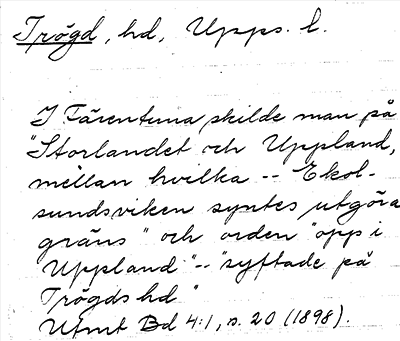 Trögd, hd, Upps. l.
I Färentuna skilde man på
"Storlandet och Uppland,
mellan hvilka -- Ekol-
sundsviken syntes utgöra
gräns" och orden "opp i
Uppland" -- "syftade på
Trögds hd"
Ufmt Bd 4:1, s. 20 (1898).